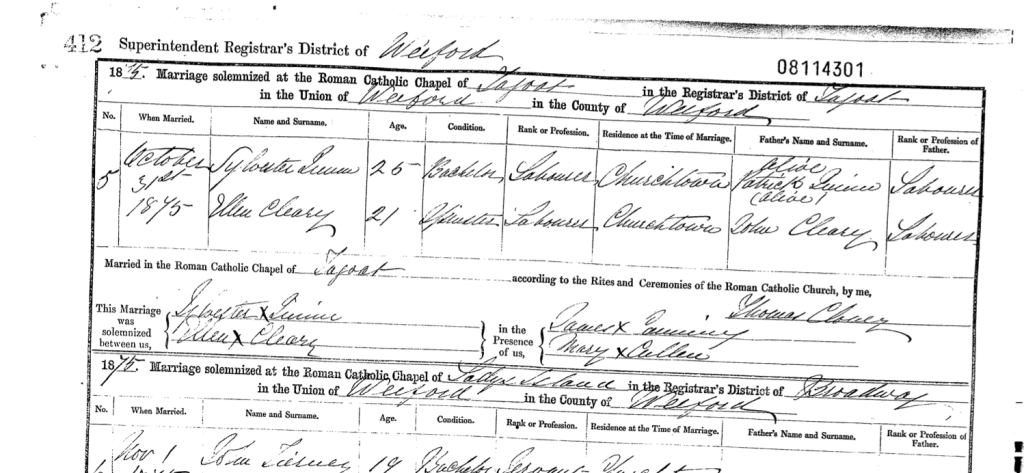 412 Superintendent Registrar's District of Wexford
08114301
1875. Marriage solemnized at the Roman Catholic Chapel of Tagoat in the Registrar's District of Tagoat
in the Union of Wexford in the County of Wexford
No. When Married. Name and Surname. Age. Condition. Rank or Profession. Residence at the Time of Marriage. Father's Name and Surname. Rank or Profession of Father.
5 October 31st 1875 Sylvester Quinn 25 Bachelor Labourer Churchtown alive Patrick Quinn Labourer
Ellen Cleary 21 Spinster Labourer Churchtown (alive) John Cleary Labourer
Married in the Roman Catholic Chapel of Tagoat according to the Rites and Ceremonies of the Roman Catholic Church, by me,
Thomas Cloney
This Marriage was solemnized between us, Sylvester X Quinn
Ellen X Cleary
in the Presence of us, James X
Mary X Cullen
1875. Marriage solemnized at the Roman Catholic Chapel of Ladys Island in the Registrar's District of Broadway
in the Union of Wexford in the County of Wexford
No. When Married. Name and Surname. Age. Condition. Rank or Profession. Residence at the Time of Marriage. Father's Name and Surname. Rank or Profession of Father.
Nov 1 John Tierney 19 Bachelor Servant